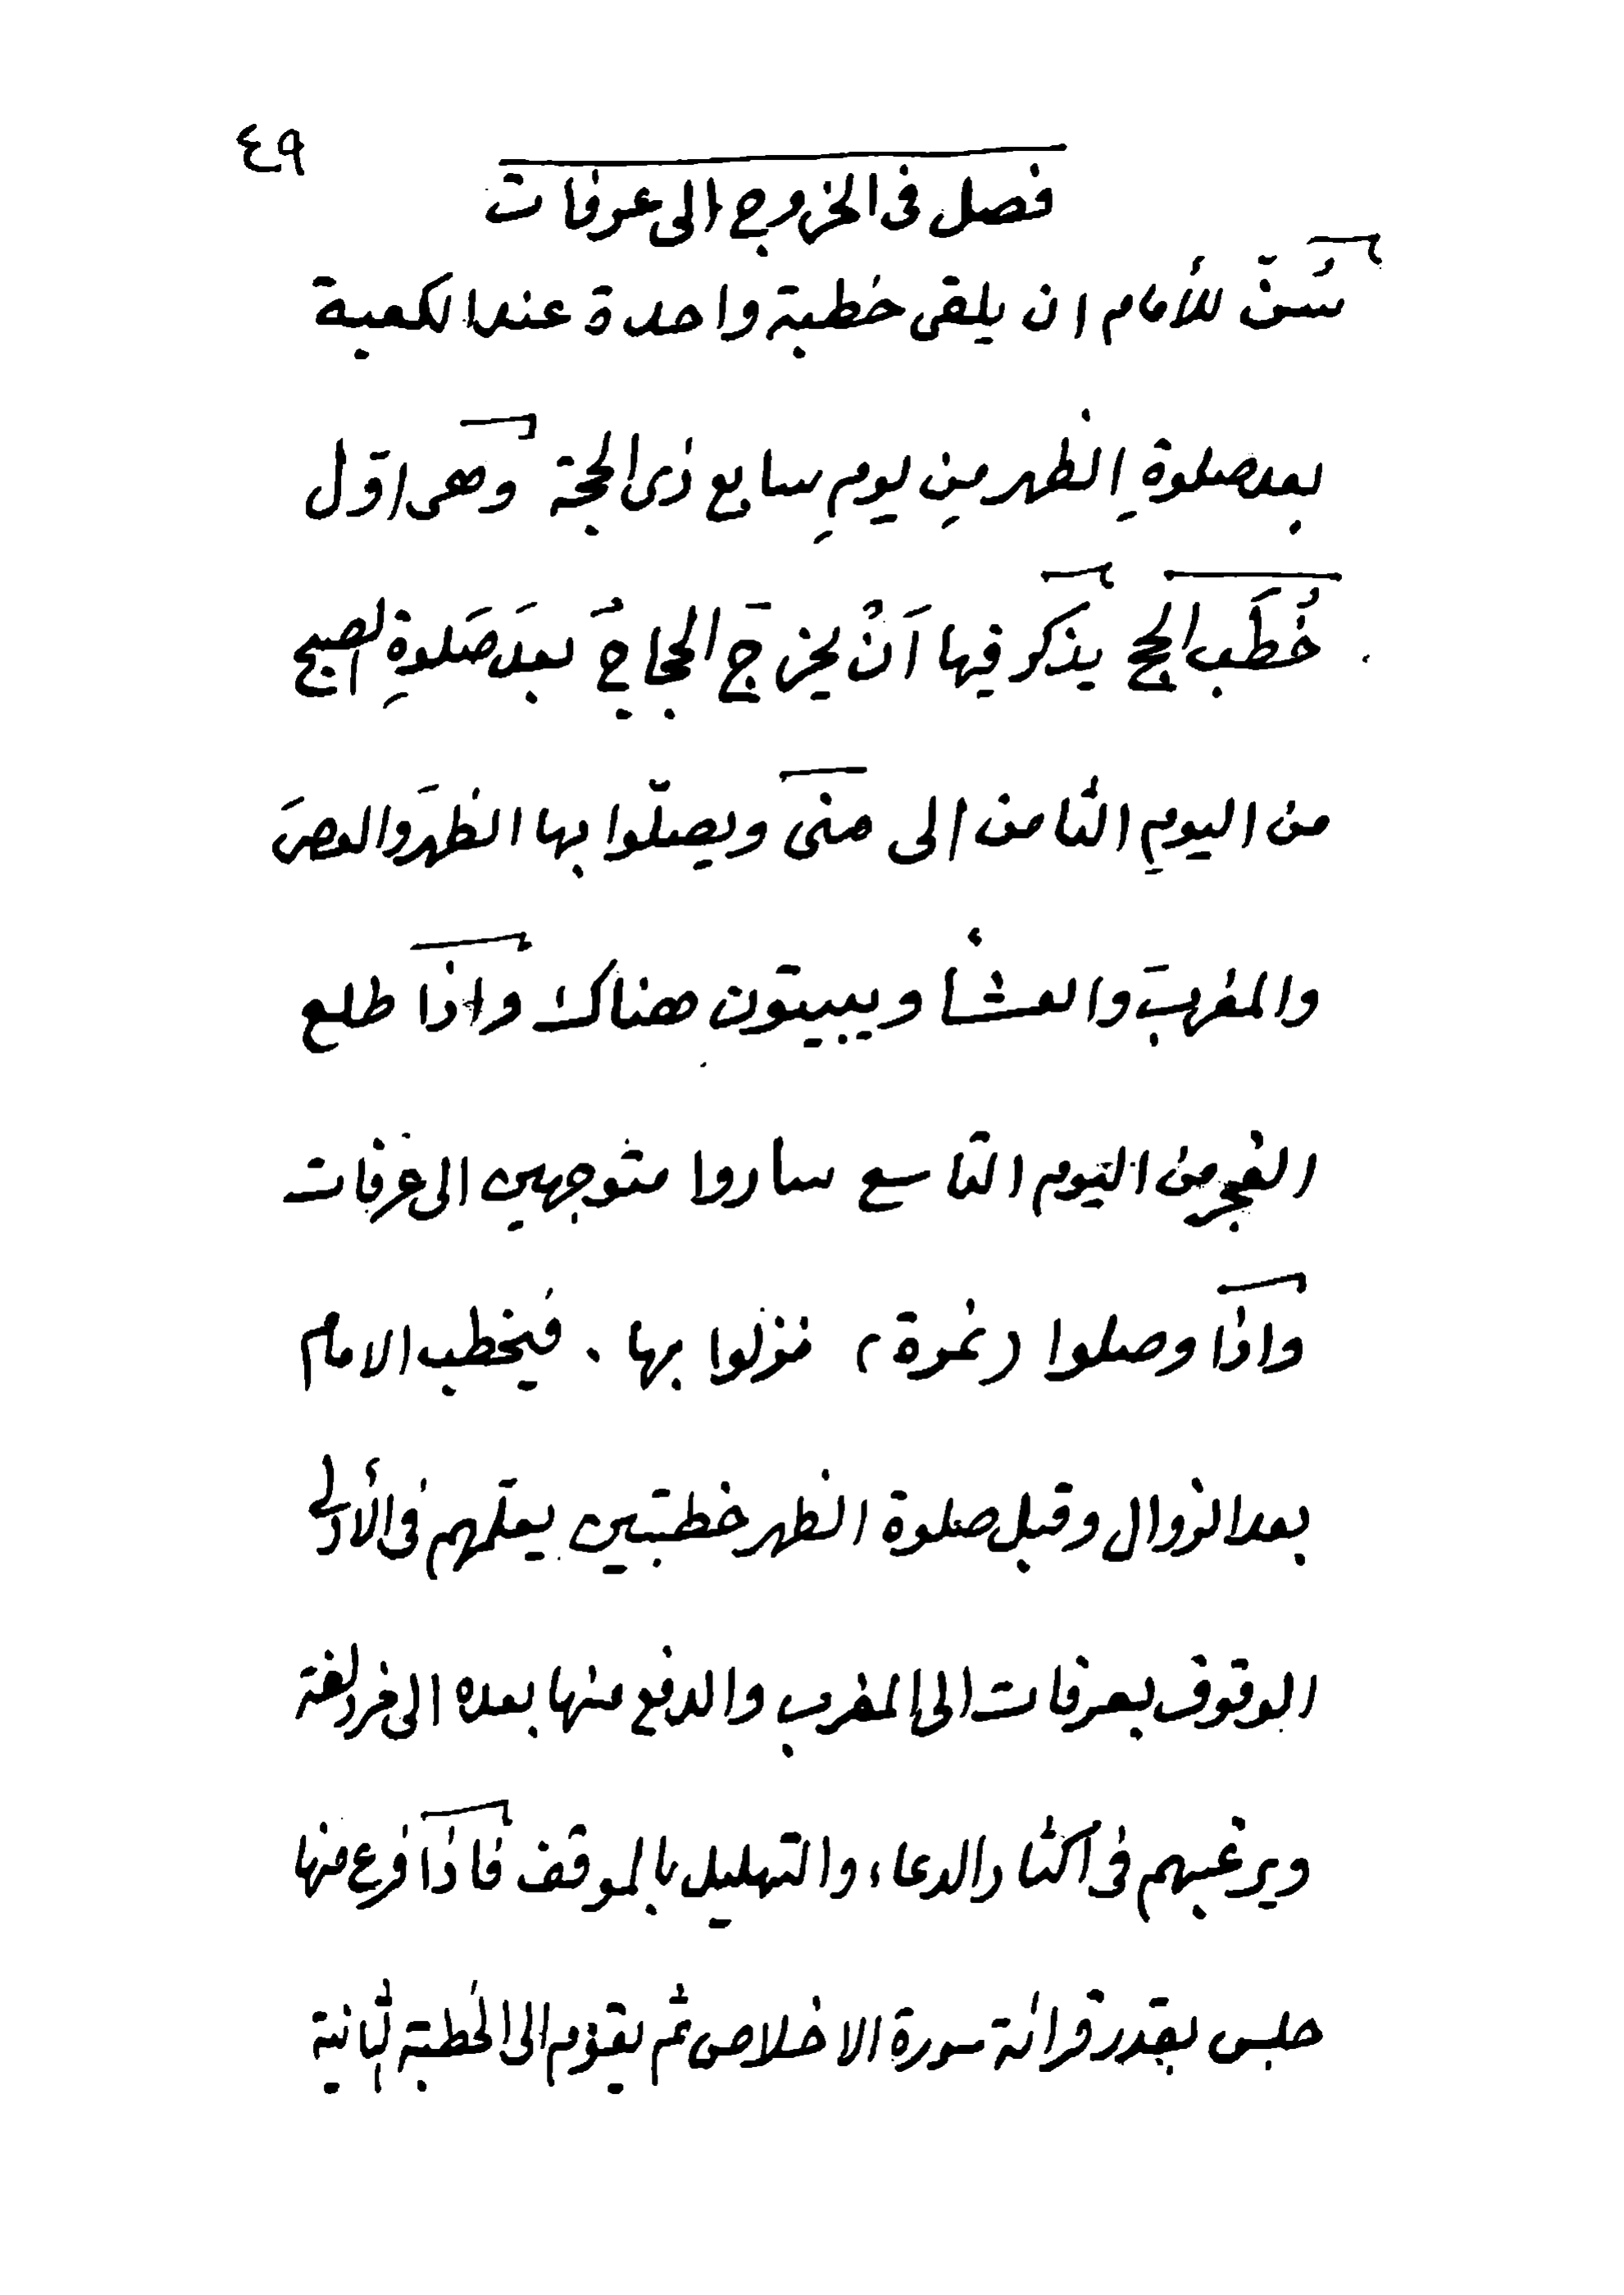 ٤٩
فصل فى الخروج إلى عرفات
سُنّ للأمام ان يلقى خطبة واحدة عند الكعبة
بعد صلوةِ الظهر مِن يومِ سابع ذى الحجة وهى اوّل
خُطَب الحج يذكر فيها اَنْ يخرجَ الحجاجُ بعدَ صَلوةِ الصبح
من اليومِ الثامن إلى منى ويصلّوا بها الظهرَ والعصرَ
والمغربَ والعشأ ويبيتون هناك واذا طلع
الفجر من اليوم التاسع ساروا متوجهين الى عرفات
واذا وصلوا (نمرة) نزلوا بها . فيخطب الامام
بعد الزوال وقبل صلوة الظهر خطبتين يعلّمهم فى الأولى
الوقوف بعرفات الى المغرب والدفع منها بعده الى مزدلفة
ويرغبهم فى اكثار الدعاء والتهليل بالموقف فاذا فرغ منها
جلس بقدر قرائة سورة الاخلاص ثم يقوم الى الخطبة الثانية